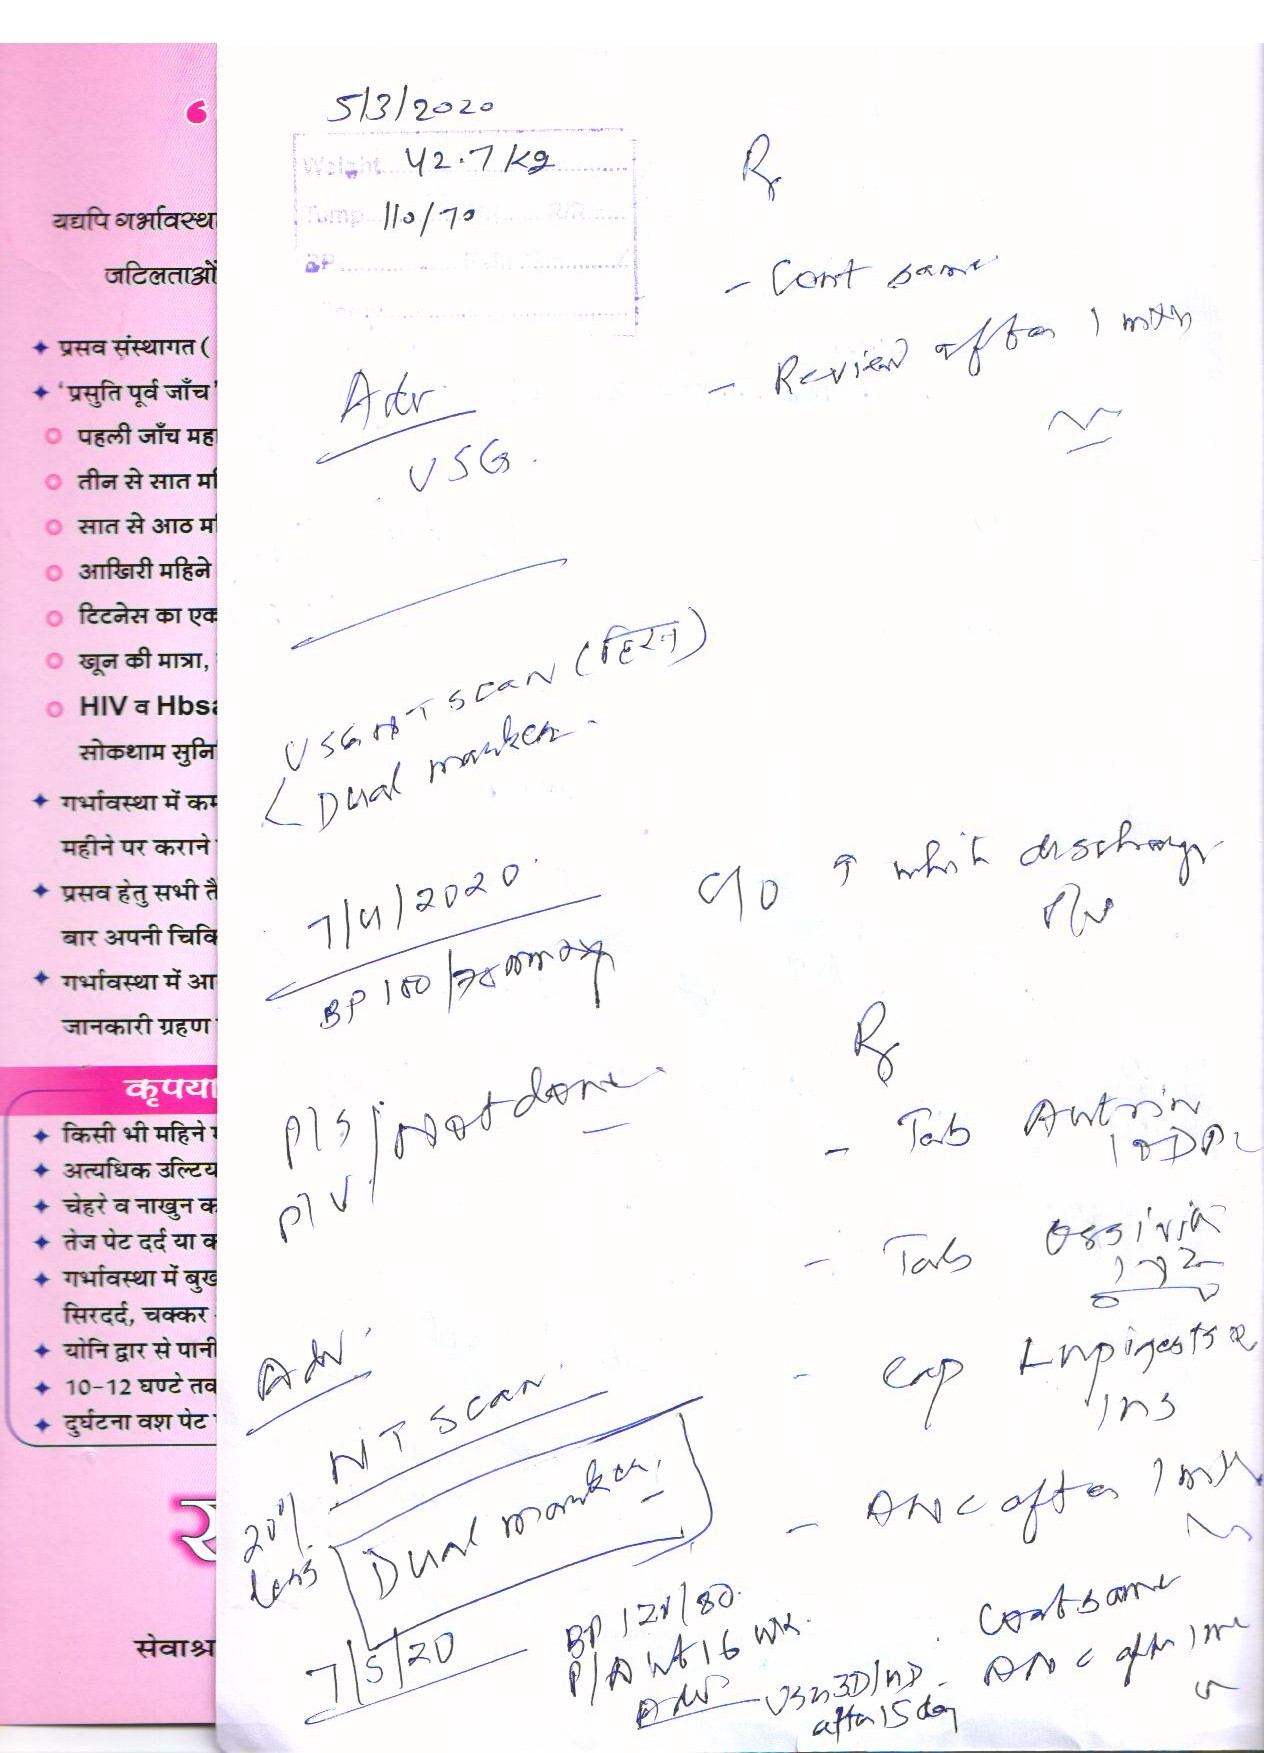 ६
यद्यपि गर्भावस्था
जटिलताओं
प्रसव संस्थागत (
'प्रसुति पूर्व जाँच'
पहली जाँच महि
तीन से सात म
सात से आठ म
आखिरी महिने
टिटनेस का एक
खून की मात्रा,
HIV व Hbsa
सोकथाम सुनि
गर्भावस्था में कम
महीने पर कराने
प्रसव हेतु सभी तै
बार अपनी चिकि
गर्भावस्था में आ
जानकारी ग्रहण
कृपया
किसी भी महिने म
अत्यधिक उल्टिय
चेहरे व नाखुन क
तेज पेट दर्द या क
गर्भावस्था में बुख
सिरदर्द, चक्कर
योनि द्वार से पानी
10-12 घण्टे तव
दुर्घटना वश पेट
सेवाश्र
5/3/2020
Weight 42.7 kg
110/70
BP
Adv.
USG.
Rx
- Cont same
- Review after 1 mth
USG NT Scan (
Dual marker.
7/4/2020
BP 100/70 mmHg
C/O ↑ white discharge
P/V
P/S / Not done
P/V
Rx
- Tab Autrin
1 OD
- Tab Ossivit
- Cap
1 HS
- ANC after 1 mth
Adv.
NT Scan
20% less
Dual marker
7/5/20
BP 120/80
P/A Ut 16 wk.
Adv USG 3D/4D after 15 day
Cont same
- ANC after 1 m